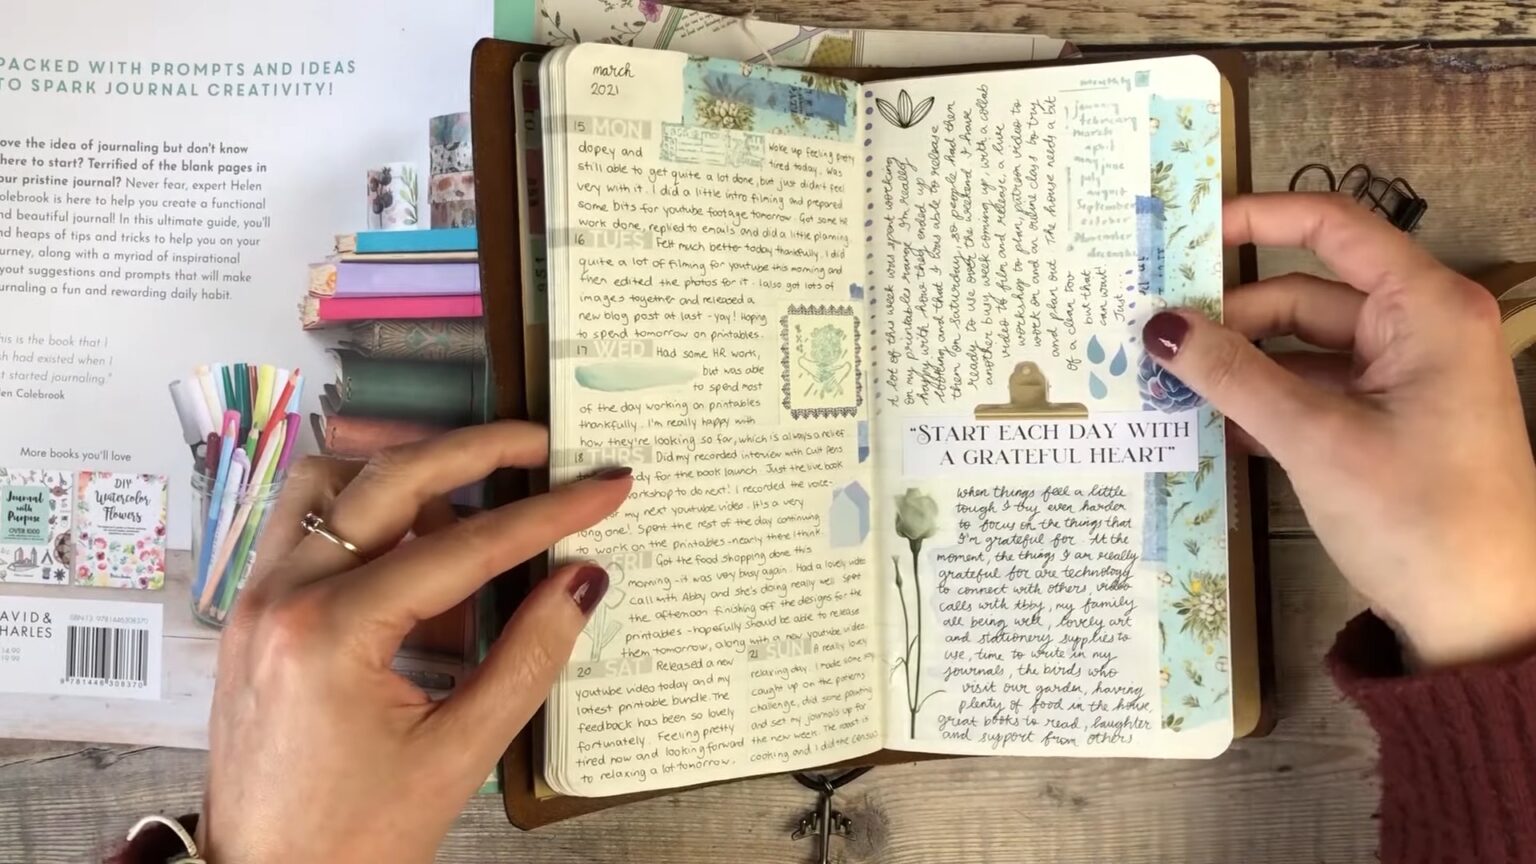 PACKED WITH PROMPTS AND IDEAS
TO SPARK JOURNAL CREATIVITY!
ove the idea of journaling but don't know
here to start? Terrified of the blank pages in
our pristine journal? Never fear, expert Helen
Colebrook is here to help you create a functional
nd beautiful journal! In this ultimate guide, you'll
nd heaps of tips and tricks to help you on your
urney, along with a myriad of inspirational
yout suggestions and prompts that will make
urnaling a fun and rewarding daily habit.
is is the book that I
sh had existed when I
st started journaling."
len Colebrook
More books you'll love
Journal
with
Purpose
OVER 1000
DIY
Watercolor
Flowers
AVID &
HARLES
ISBN-13: 9781446308370
9 781446 308370
march
2021
15 MON
Woke up feeling pretty
dopey and
tired today. Was
still able to get quite a lot done, but just didn't feel
very with it. I did a little intro filming and prepared
some bits for youtube footage tomorrow. Got some HR
work done, replied to emails and did a little planning.
16 TUES Felt much better today thankfully. I did
quite a lot of filming for youtube this morning and
then edited the photos for it. I also got lots of
images together and released a
new blog post at last - yay! Hoping
to spend tomorrow on printables.
17 WED Had some HR work,
but was able
to spend most
of the day working on printables
thankfully. I'm really happy with
how they're looking so far, which is always a relief
18 THRS Did my recorded interview with Cult Pens
dy for the book launch. Just the live book
workshop to do next! I recorded the voice-
for my next youtube video. It's a very
long one! Spent the rest of the day continuing
to work on the printables - nearly there I think
FRI Got the food shopping done this
morning - it was very busy again. Had a lovely video
call with Abby and she's doing really well. Spent
the afternoon finishing off the designs for the
printables - hopefully should be able to release
them tomorrow, along with a new youtube video.
20 SAT Released a new
youtube video today and my
latest printable bundle. The
feedback has been so lovely
fortunately. Feeling pretty
tired now and looking forward
to relaxing a lot tomorrow.
21 SUN A really lovely
relaxing day. I made some soup,
caught up on the patterns
challenge, did some painting
and set my journals up for
the new week. The roast is
cooking and I did the census
A lot of this week was spent working
on my printables range. I'm really
happy with how they ended up
looking and that I was able to release
them on Saturday, so people had them
ready to use over the weekend. I have
another busy week coming up, with a collab
video to film and release, a live
workshop to plan, patreon video to
work on and an online class to try
and plan out. The house needs a bit
of a clean too
but that
can wait!
Just...
monthly
january
february
march
april
may june
july
august
September
october
November
december
"START EACH DAY WITH
A GRATEFUL HEART"
When things feel a little
tough I try even harder
to focus on the things that
I'm grateful for. At the
moment, the things I am really
grateful for are technology
to connect with others, video
calls with Abby, my family
all being well, lovely art
and stationery supplies to
use, time to write in my
journals, the birds who
visit our garden, having
plenty of food in the house,
great books to read, laughter
and support from others